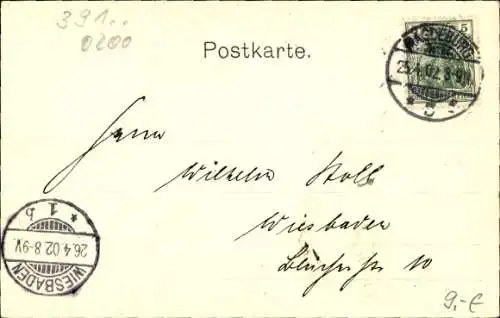 391..
0200
Postkarte.
5
MAGDEBURG
25.4.02.8-9N.
* 5 *
Herrn
Wilhelm Stoll
Wiesbaden
Blücherstr 10
* 1 b
26.4.02.8-9V.
WIESBADEN
9,- €